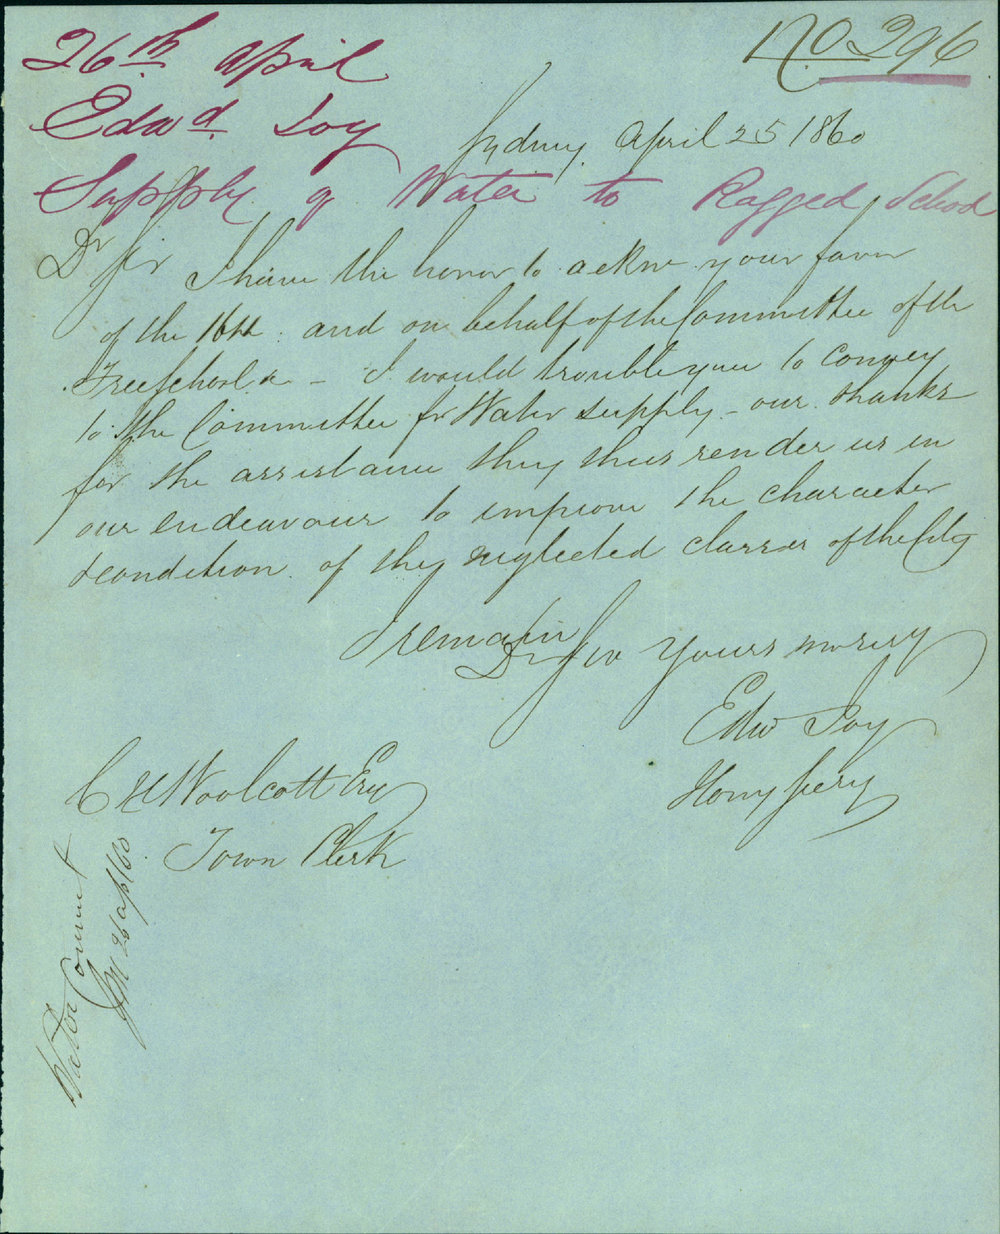 No 296
26th April
Edwd Joy
Supply of Water to Ragged School
Sydney April 25 1860
Dr Sir
I have the honor to ackne your favor
of the 16th and on behalf of the Committee of the
Free School &c - I would trouble you to convey
to the Committee for Water supply - our thanks
for the assistance they thus render us in
our endeavour to improve the character
& condition of the neglected classes of the City
I remain
Dr Sir Yours
Edw Joy
Hony Secy
C H Woolcott Esq
Town Clerk
Water Committ
26 apl/60